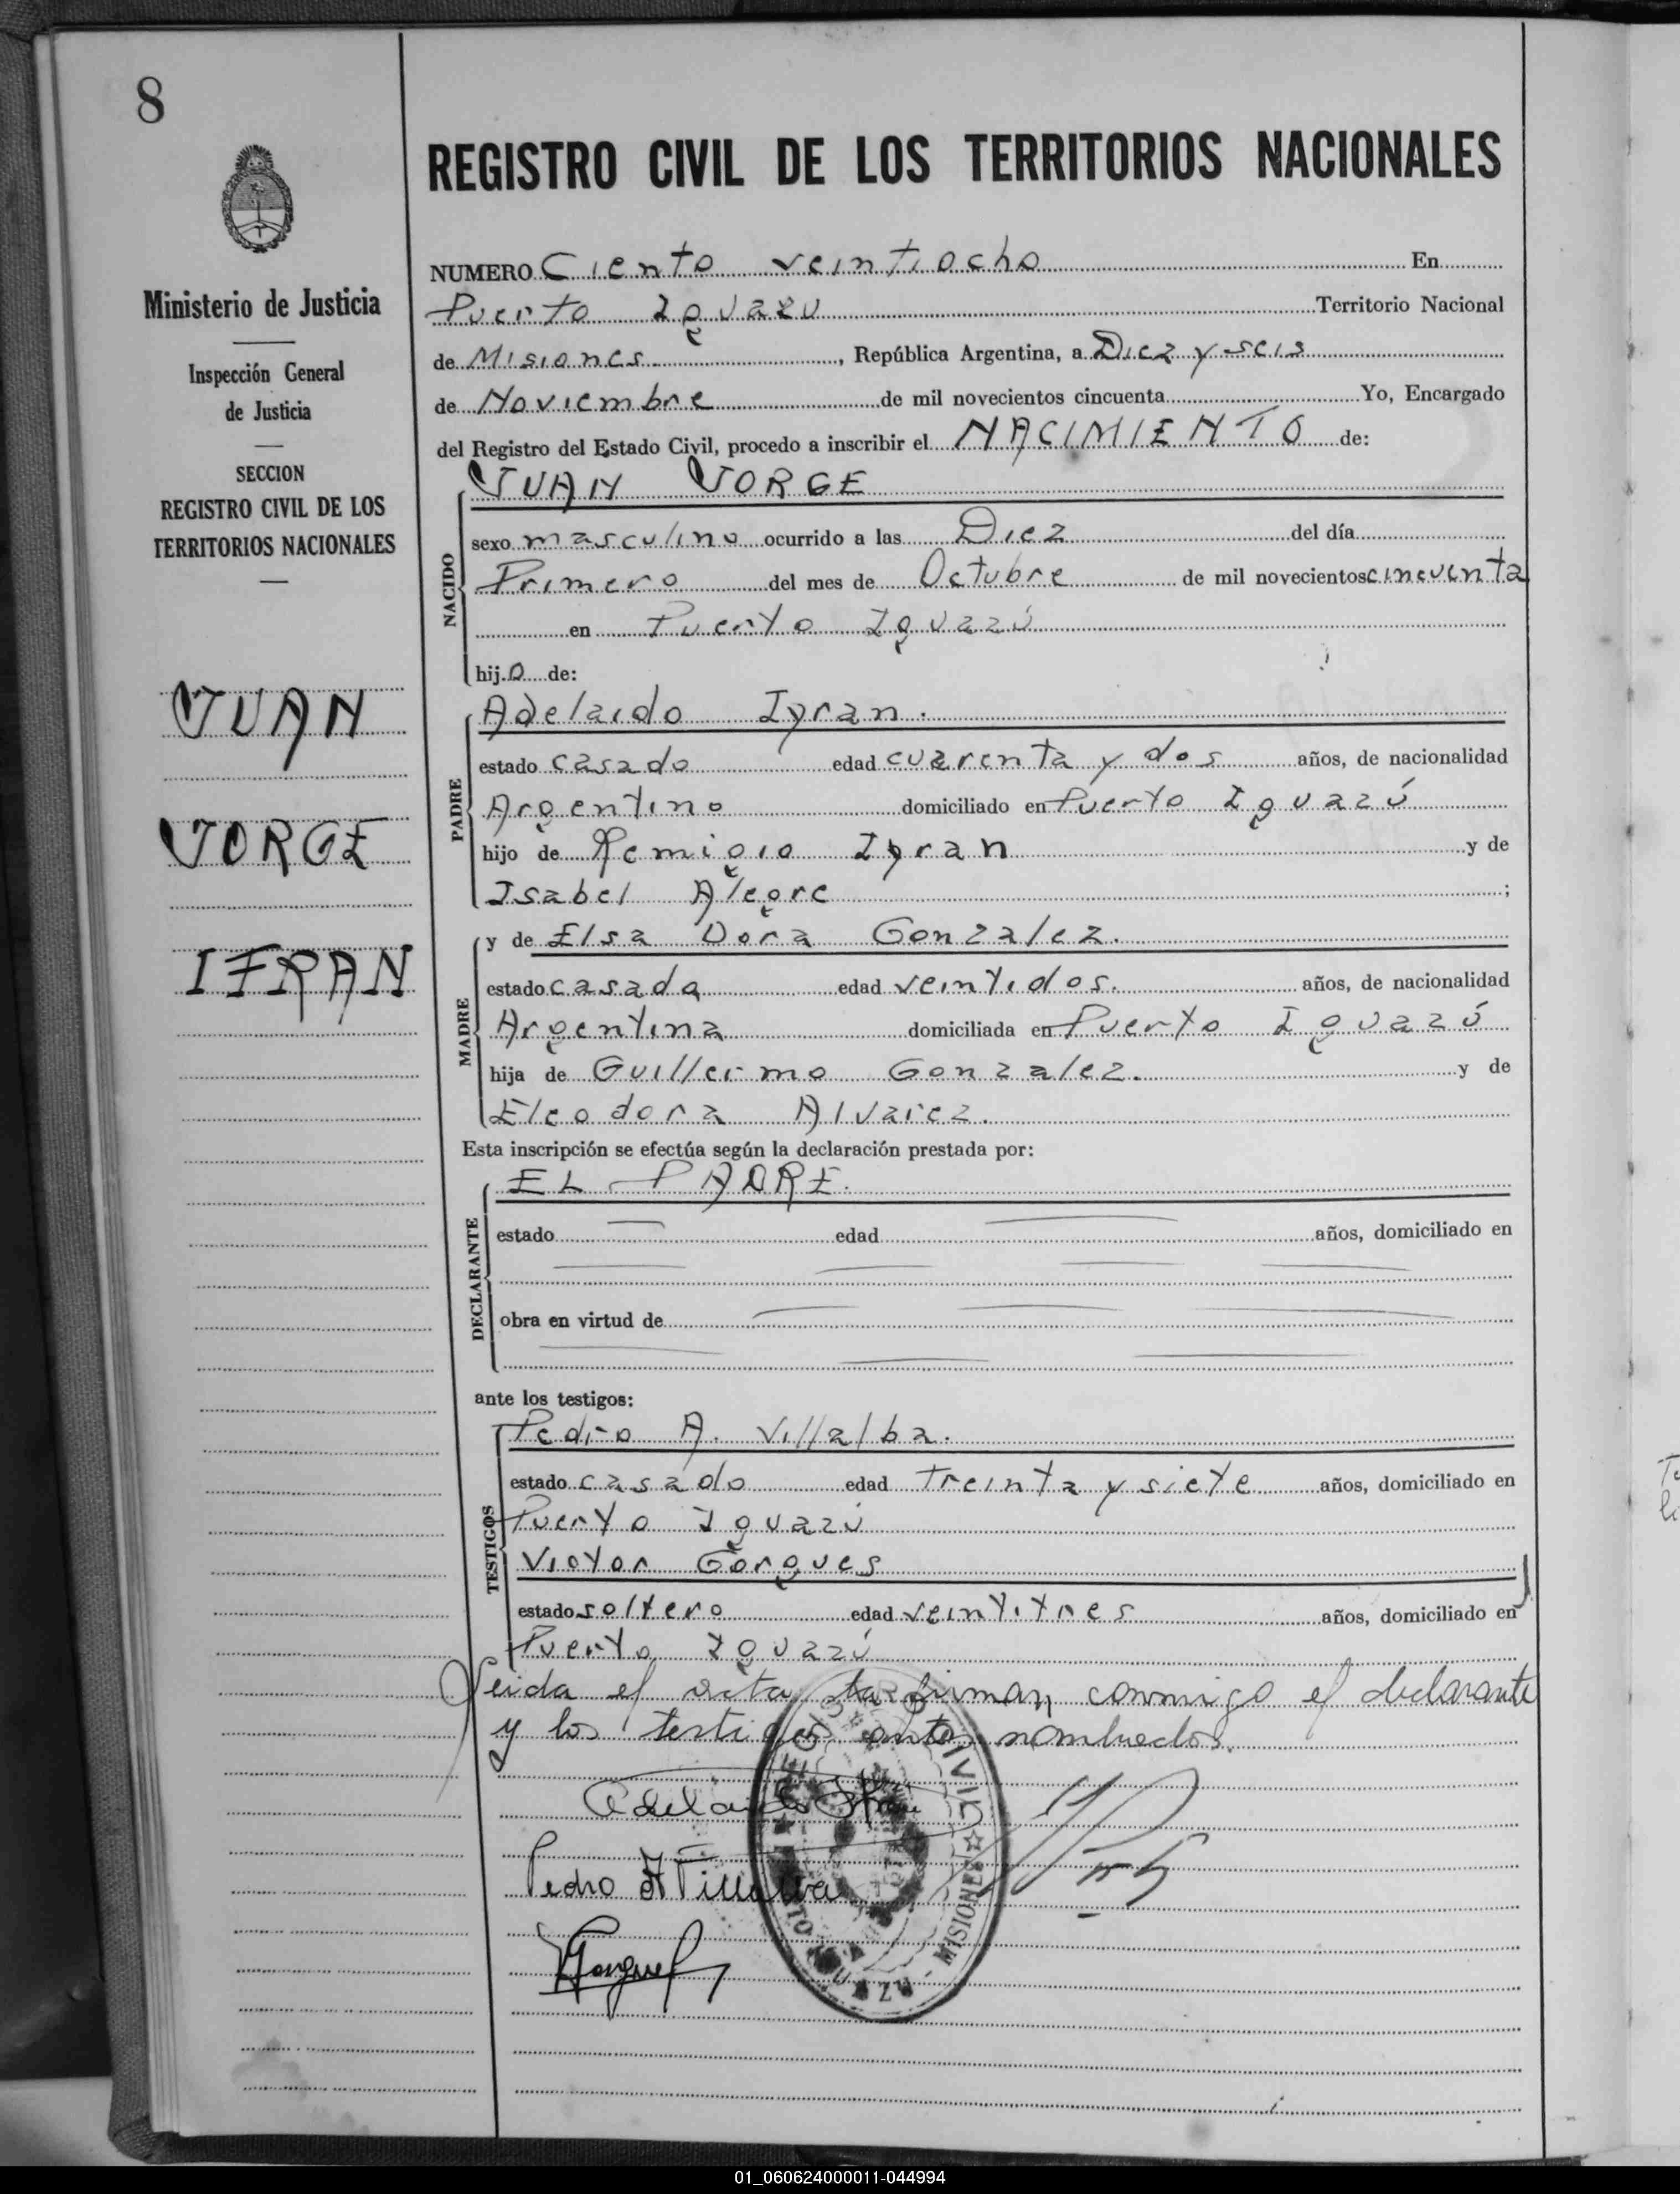 8
REGISTRO CIVIL DE LOS TERRITORIOS NACIONALES
Ministerio de Justicia
Inspección General
de Justicia
SECCION
REGISTRO CIVIL DE LOS
TERRITORIOS NACIONALES
JUAN
JORGE
IFRAN
NUMERO Ciento veintiocho En
Puerto Iguazu Territorio Nacional
de Misiones, República Argentina, a Diez y seis
de Noviembre de mil novecientos cincuenta Yo, Encargado
del Registro del Estado Civil, procedo a inscribir el NACIMIENTO de:
JUAN JORGE
NACIDO
sexo masculino ocurrido a las Diez del día
Primero del mes de Octubre de mil novecientos cincuenta
en Puerto Iguazú
hijo de:
PADRE
Adelaido Ifran.
estado casado edad cuarenta y dos años, de nacionalidad
Argentino domiciliado en Puerto Iguazú
hijo de Remigio Ifran y de
Isabel Alegre ;
MADRE
y de Elsa Dora Gonzalez.
estado casada edad veintidos. años, de nacionalidad
Argentina domiciliada en Puerto Iguazú
hija de Guillermo Gonzalez. y de
Eleodora Alvarez.
Esta inscripción se efectúa según la declaración prestada por:
DECLARANTE
EL PADRE.
estado edad años, domiciliado en
obra en virtud de
ante los testigos:
TESTIGOS
Pedro A. Villalba.
estado casado edad treinta y siete años, domiciliado en
Puerto Iguazú
Victor Gorgues
estado soltero edad veintitres años, domiciliado en
Puerto Iguazú
Leida el acta la firman conmigo el declarante
y los testigos antes nombrados.
Adelaido Ifran
Pedro A Villalba
REGISTRO CIVIL
MISIONES
VGorgues
01_060624000011-044994